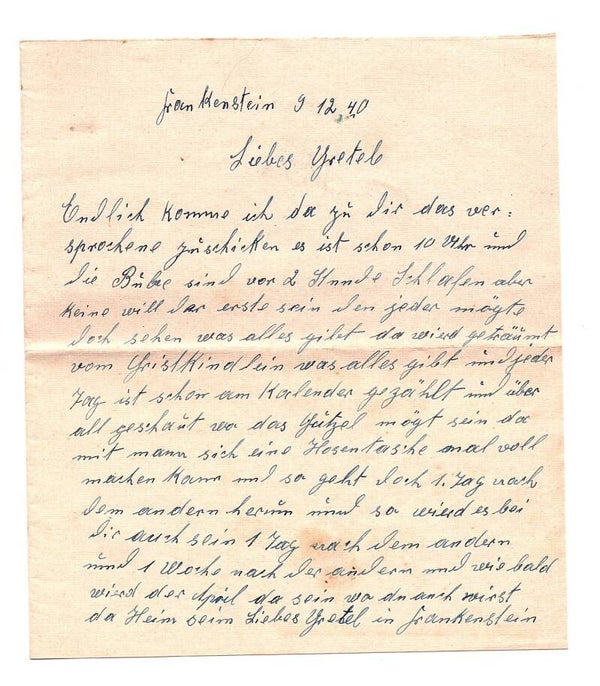 Frankenstein 9 12.40
Liebes Gretel
Endlich komme ich da zu dir das ver:
sprochene zuschicken es ist schon 10 Uhr und
die Bübe sind vor 2 Stunde Schlafen aber
keine will der erste sein den jeder mögte
doch sehen was alles gibt da wierd geträumt
vom Gristkindlein was alles gibt und jeder
Tag ist schon am Kalender gezählt und über
all geschaut wo das Gützel mögt sein da
mit mann sich eine Hosentasche mal voll
machen kann und so geht doch 1. Tag nach
dem andern herum und so wierd es bei
dir auch sein 1 Tag nach dem andern
und 1 Woche nach der andern und wie bald
wierd der April da sein wo du auch wirst
da Heim seim Liebes Gretel in Frankenstein